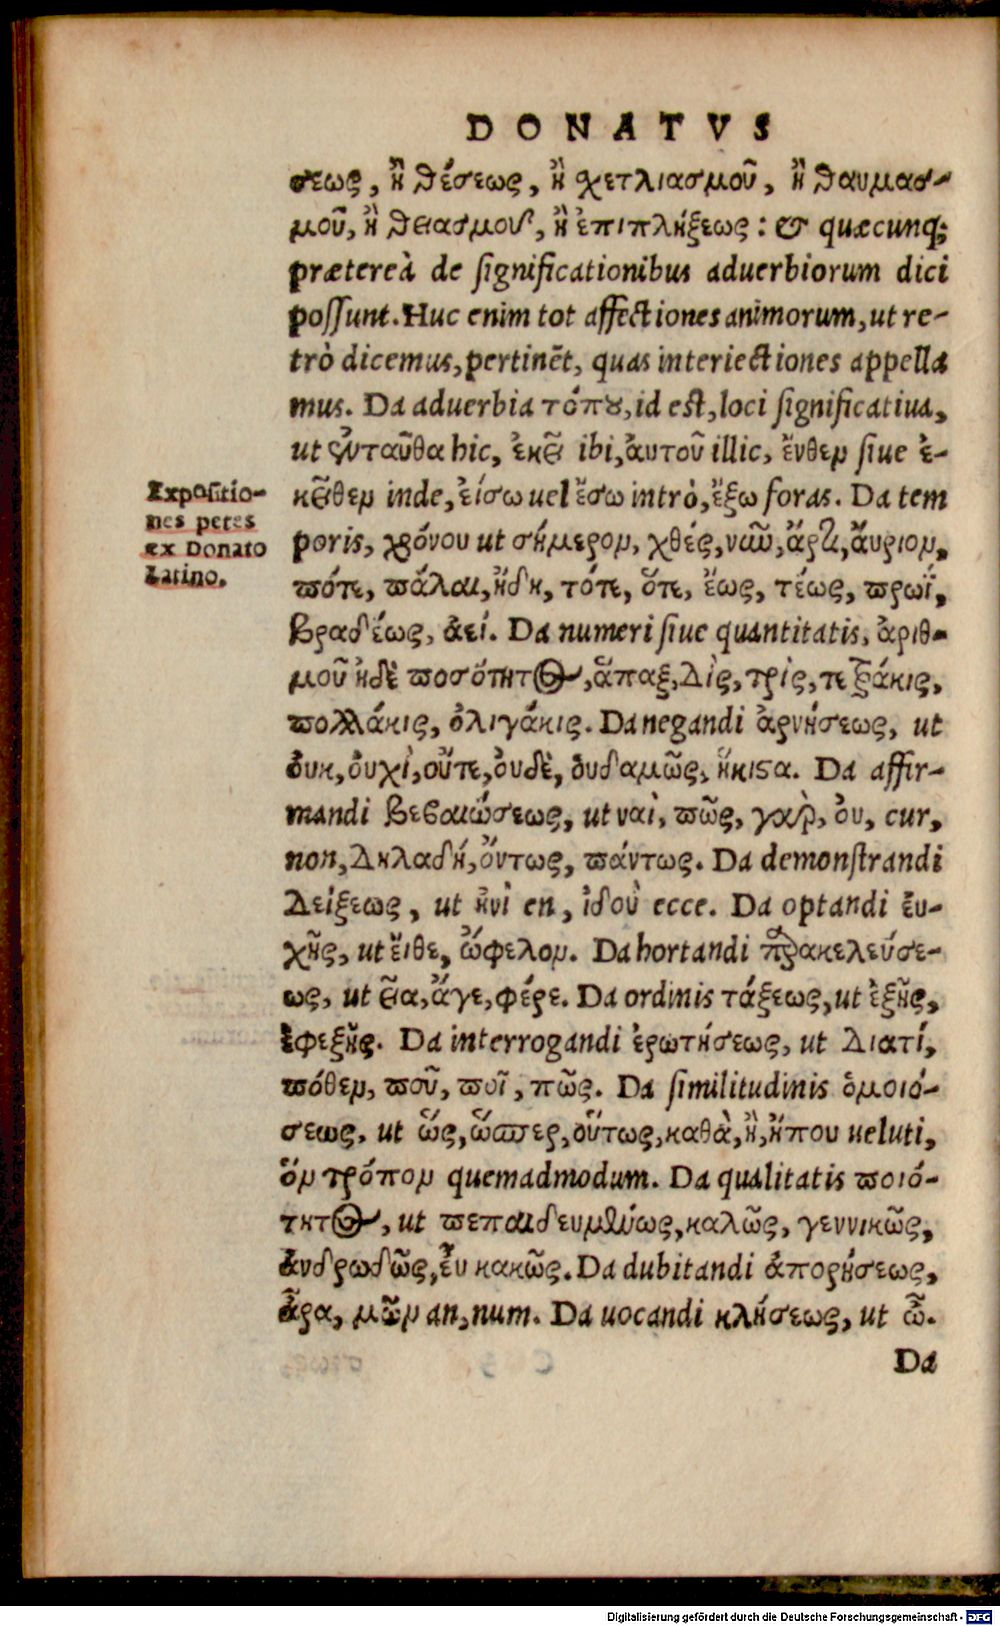 DONATVS
σεως, ἢ θέσεως, ἢ χετλιασμοῦ, ἢ θαυμασ-
μοῦ, ἢ θειασμοῦ, ἢ ἐπιπλήξεως: & quæcunq;
prætereà de significationibus aduerbiorum dici
possunt. Huc enim tot affectiones animorum, ut re-
trò dicemus, pertinēt, quas interiectiones appella
mus. Da aduerbia τόπου, id est, loci significatiua,
ut ἐνταῦθα hic, ἐκεῖ ibi, ἀυτοῦ illic, ἔνθεν siue ἐ-
κεῖθεν inde, ἐίσω uel ἔσω intrò, ἔξω foras. Da tem
poris, χρόνου ut σήμερον, χθές, νῶυ, ἄρτι, ἄυριον,
πότε, πάλαι, ἤδη, τότε, ὅτε, ἕως, τέως, πρωΐ,
βραδέως, ἀεί. Da numeri siue quantitatis, ἀριθ-
μοῦ ἠδὲ ποσότητος, ἅπαξ, Δὶς, τρὶς, τετράκις,
πολλάκις, ὀλιγάκις. Da negandi ἀρνήσεως, ut
ὀυκ, ὀυχὶ, οὔτε, ὀυδὲ, ὀυδαμῶς, ἥκιστα. Da affir-
mandi βεβαιώσεως, ut ναὶ, πῶς, γὰρ, ὀυ, cur,
non, Δηλαδή, ὄντως, πάντως. Da demonstrandi
Δείξεως, ut ἠνὶ en, ἰδοὺ ecce. Da optandi ἐυ-
χῆς, ut ἔιθε, ὤφελον. Da hortandi παρακελεύσε-
ως, ut εἶα, ἄγε, φέρε. Da ordinis τάξεως, ut ἑξῆς,
ἐφεξῆς. Da interrogandi ἐρωτήσεως, ut Διατί,
πόθεν, ποῦ, ποῖ, πῶς. Da similitudinis ὁμοιό-
σεως, ut ὥς, ὥσπερ, ὅυτως, καθὰ, ἢ, ἤπου ueluti,
ὅν τρόπον quemadmodum. Da qualitatis ποιό-
τητος, ut πεπαιδευμένως, καλῶς, γεννικῶς,
ἀνδρωδῶς, ἐῦ κακῶς. Da dubitandi ἀπορήσεως,
ἆρα, μῶν an, num. Da uocandi κλήσεως, ut ὦ.
Da
Expositio-
nes petes
ex Donato
Latino.
Digitalisierung gefördert durch die Deutsche Forschungsgemeinschaft - DFG